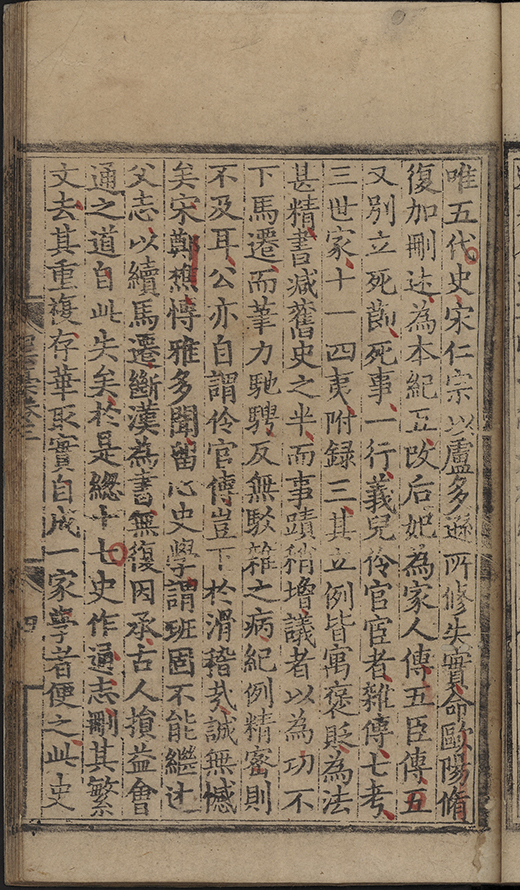 唯五代史宋仁宗以盧多遜所修失實命歐陽脩
復加刪述為本紀五改后妃為家人傳五臣傳五
又別立死節死事一行義兒伶官宦者雜傳七考
三世家十一四夷附録三其立例皆寓褒貶為法
甚精書减舊史之半而事蹟稍增議者以為功不
下馬遷而筆力馳騁反無駁雜之病紀例精密則
不及耳公亦自謂伶官傳豈下於滑稽㢤誠無憾
矣宋鄭樵博雅多聞留心史學謂班固不能繼
父志以續馬遷斷漢為書無復因承古人損益會
通之道自此失矣於是緫十七史作通志刪其繁
文去其重複存華取實自成一家學者便之此史